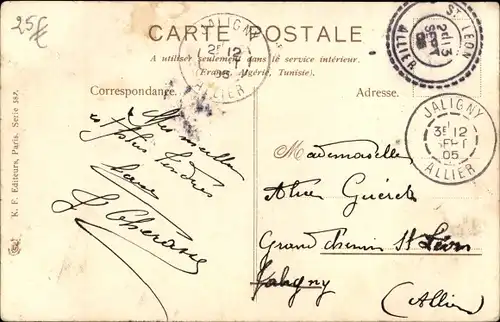 25f
CARTE POSTALE
A utiliser seulement dans le service intérieur.
(France, Algérie, Tunisie).
Correspondance.
Adresse.
JALIGNY
2E 12
05
ALLIER
ST LEON
SEPT
ALLIER
JALIGNY
3E 12
SEPT
05
ALLIER
Mes meilleurs
et plus tendres
Mademoiselle
Alice
Grand chemin St Léon
Jaligny
(Allier)
K. F. Editeurs, Paris. Série 587.